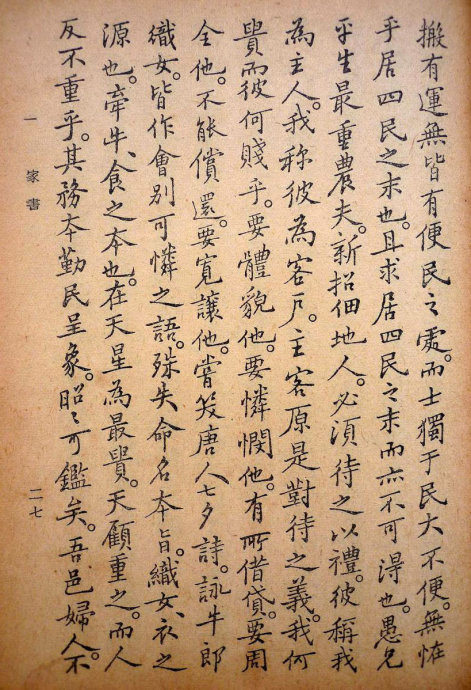 搬有運無皆有便民之處。而士獨于民大不便。無恠
乎居四民之末也。且求居四民之末而亦不可得也。愚兄
平生最重農夫。新招佃地人。必須待之以禮。彼稱我
為主人。我称彼為客戶。主客原是對待之義。我何
貴而彼何賤乎。要體貌他。要憐憫他。有所借貸。要周
全他。不能償還。要寬讓他。嘗笑唐人七夕詩。詠牛郎
織女。皆作會別可憐之語。殊失命名本旨。織女、衣之
源也。牽牛、食之本也。在天星為最貴。天顧重之。而人
反不重乎。其務本勤民呈象。昭〻可鑑矣。吾邑婦人不
一 家書 二七